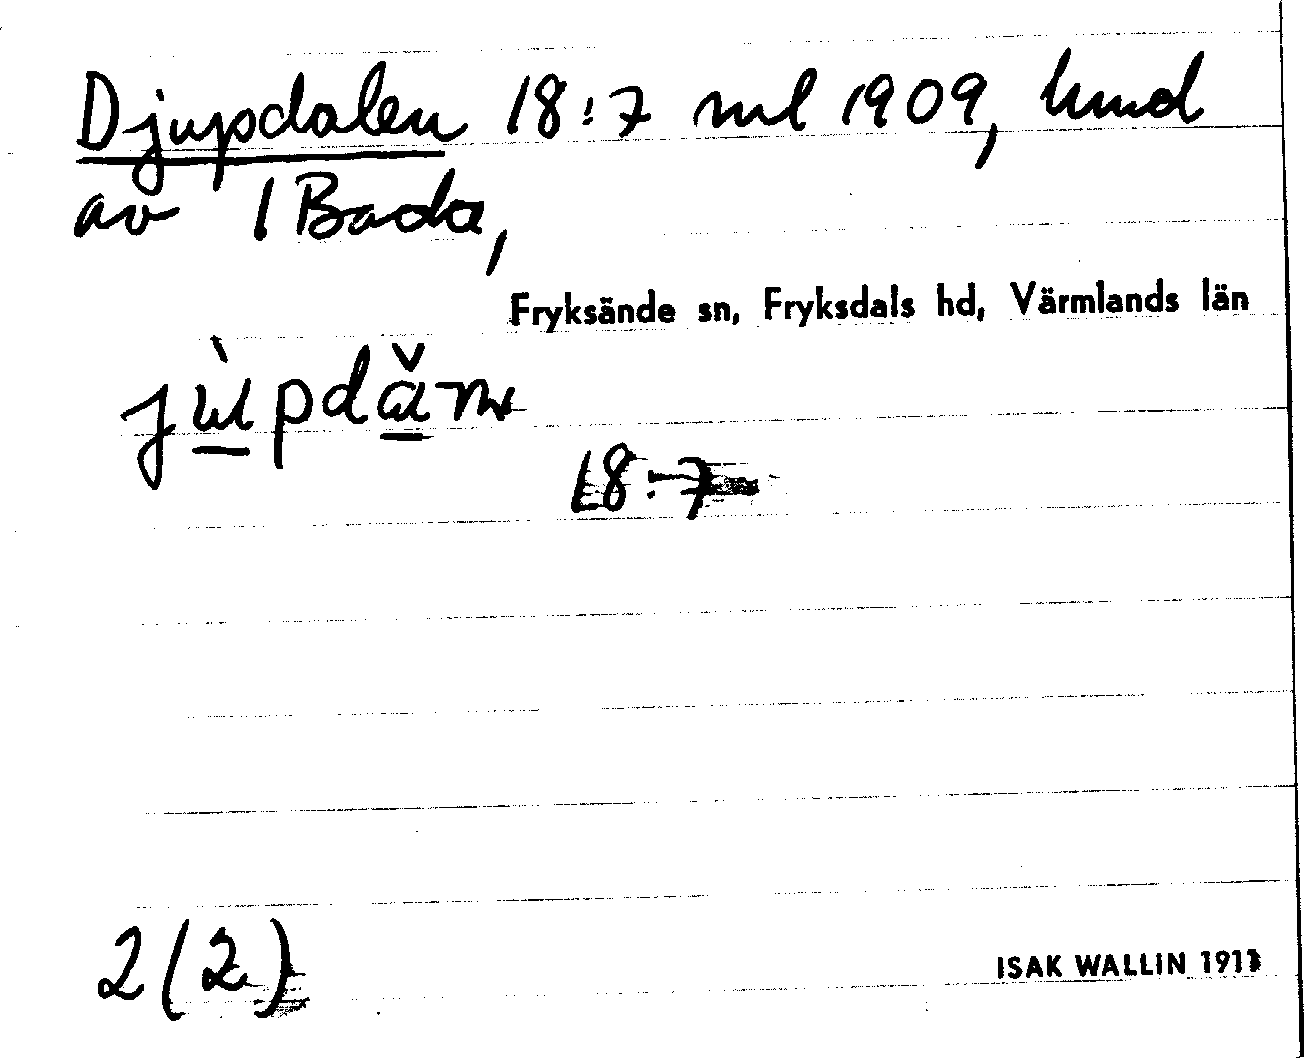 Djupdalen 18:7 ml 1909, hmd
av 1 Bada,
Fryksände sn, Fryksdals hd, Värmlands län
18:7
2 (2)
ISAK WALLIN 1911